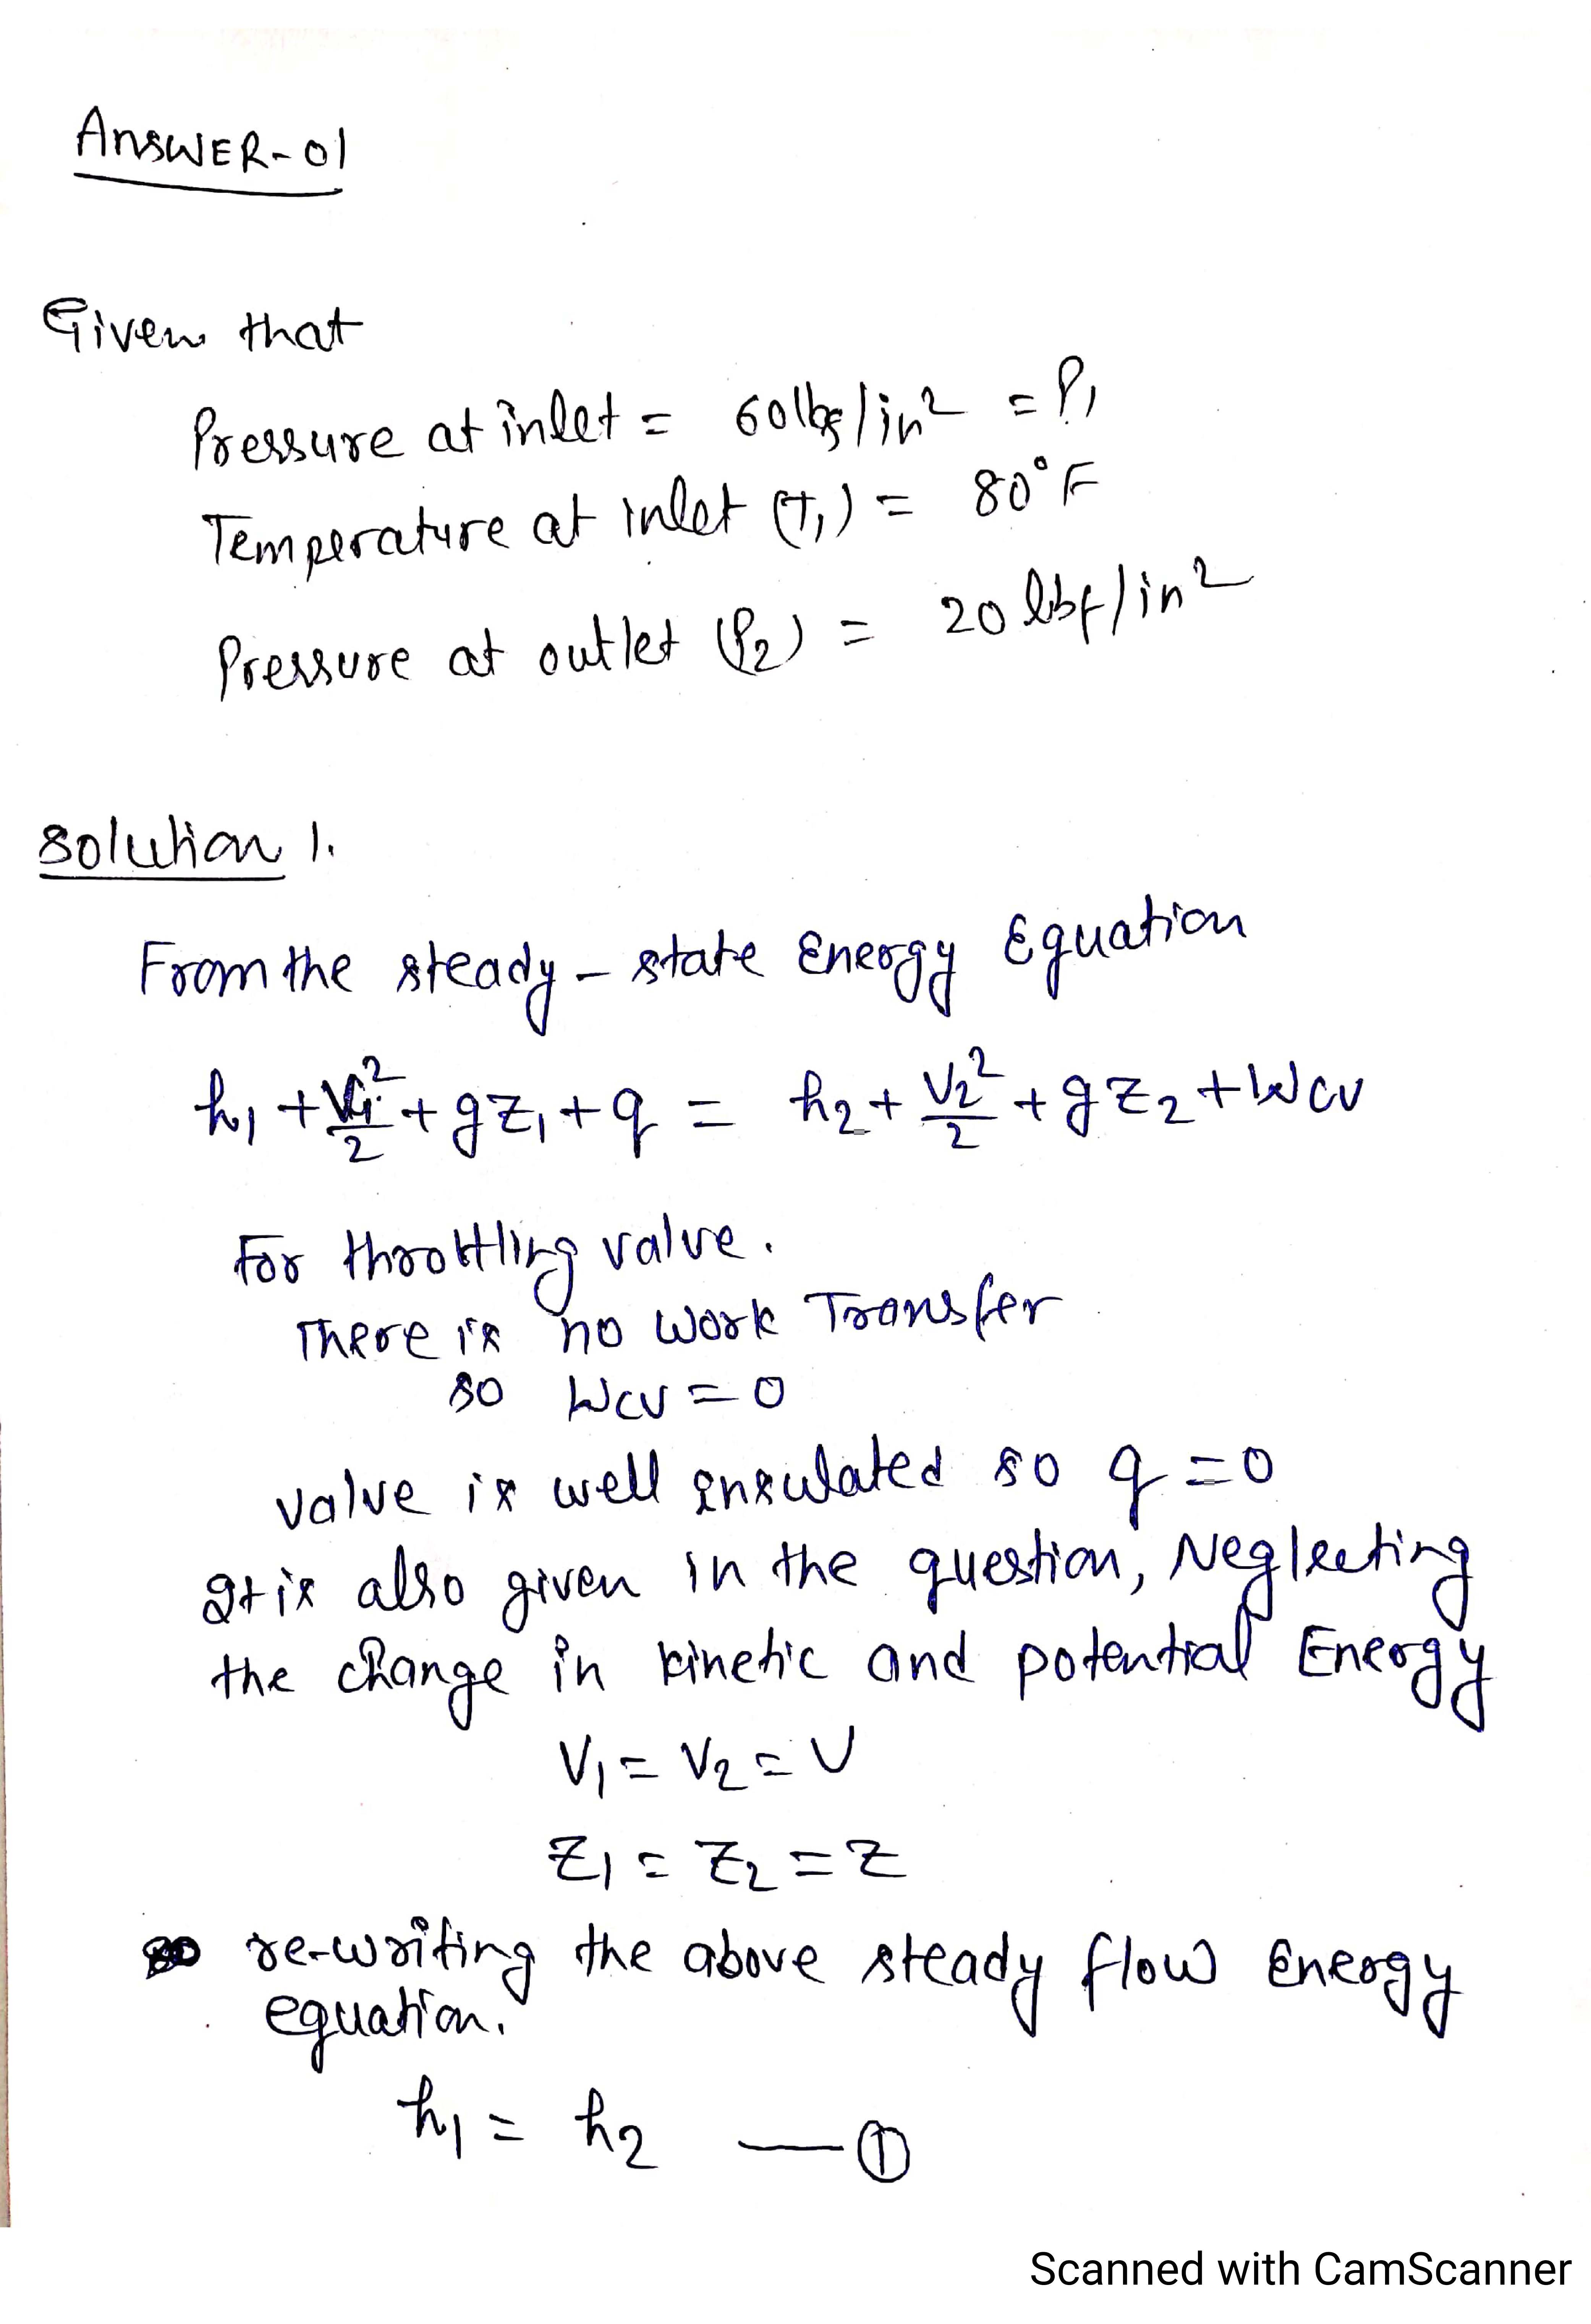 ANSWER-01
Given that
Pressure at inlet = 60 lbf/in² = P₁
Temperature at inlet (T₁) = 80°F
Pressure at outlet (P₂) = 20 lbf/in²
Solution 1.
From the steady-state Energy Equation
h₁ + V₁²/2 + gz₁ + q = h₂ + V₂²/2 + gz₂ + Wcv
For throttling valve.
There is no work Transfer
so Wcv = 0
valve is well insulated so q = 0
It is also given in the question, Neglecting
the change in kinetic and potential Energy
V₁ = V₂ = V
Z₁ = Z₂ = Z
re-writing the above steady flow Energy
equation.
h₁ = h₂ —①
Scanned with CamScanner